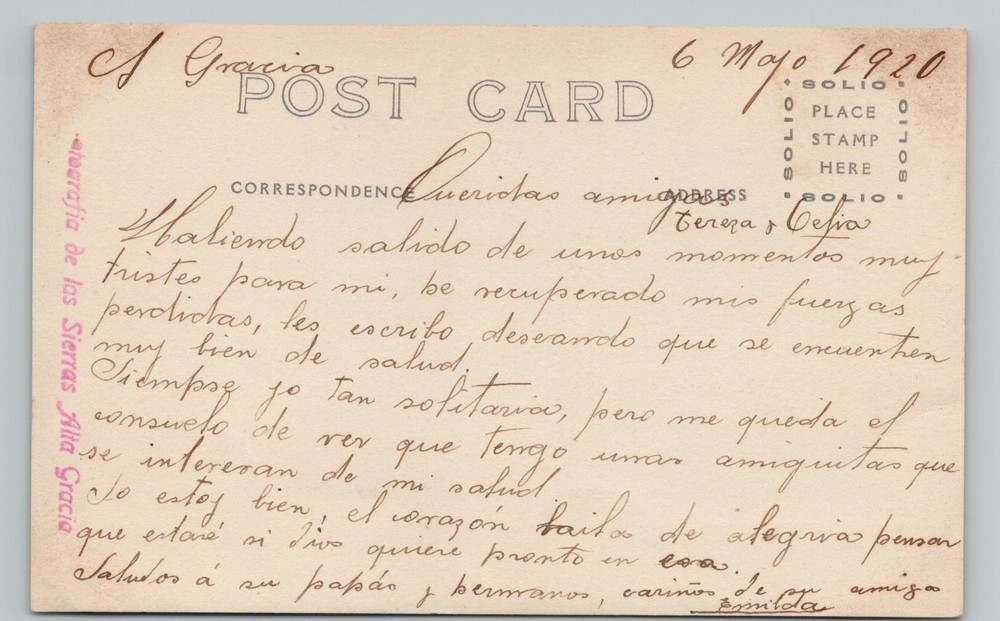 A Gracia 6 Mayo 1920
POST CARD
SOLIO
SOLIO PLACE SOLIO
STAMP
HERE
SOLIO
CORRESPONDENCE ADDRESS
Queridas amigas
Tereza y Celia
Haliendo salido de unos momentos muy
tristes para mi, he recuperado mis fuerzas
perdidas, les escribo deseando que se encuentren
muy bien de salud.
Siempre yo tan solitaria, pero me queda el
consuelo de ver que tengo unas amiguitas que
se interesan de mi salud.
Yo estoy bien, el corazón baila de alegria pensar
que estaré si dios quiere pronto en esa.
Saludos á su papás y hermanos, cariños de su amiga
Emilda
otografia de las Sierras Alta Gracia